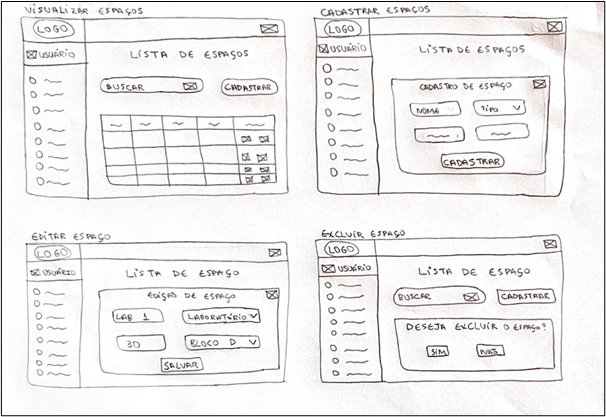 VISUALIZAR ESPAÇOS
LOGO
USUÁRIO
LISTA DE ESPAÇOS
BUSCAR
CADASTRAR
CADASTRAR ESPAÇOS
LOGO
USUÁRIO
LISTA DE ESPAÇOS
CADASTRO DE ESPAÇO
NOME
TIPO
CADASTRAR
EDITAR ESPAÇO
LOGO
USUÁRIO
LISTA DE ESPAÇO
EDIÇÃO DE ESPAÇO
LAB 1
LABORATÓRIO
30
BLOCO D
SALVAR
EXCLUIR ESPAÇO
LOGO
USUÁRIO
LISTA DE ESPAÇO
BUSCAR
CADASTRAR
DESEJA EXCLUIR O ESPAÇO?
SIM
NÃO